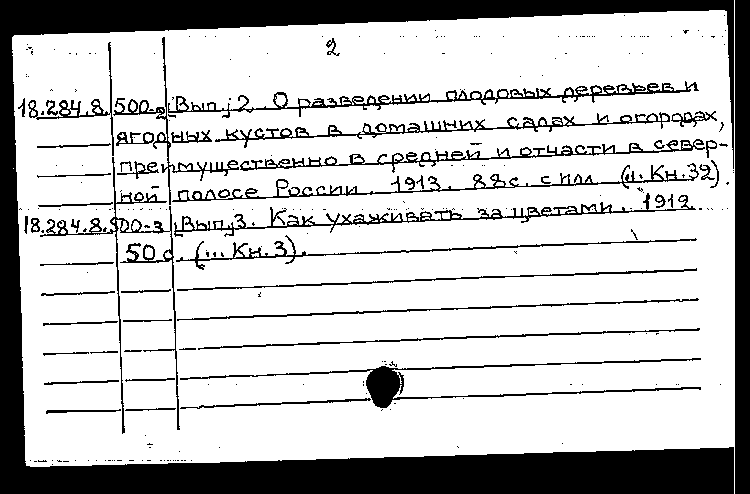 2
18.284.8.500-2 [Вып.] 2. О разведении плодовых деревьев и
ягодных кустов в домашних садах и огородах,
преимущественно в средней и отчасти в север-
ной полосе России. 1913. 88с. с илл. (... Кн.32).
18.284.8.500-3 [Вып.] 3. Как ухаживать за цветами. 1912.
50 с. (... Кн.3).